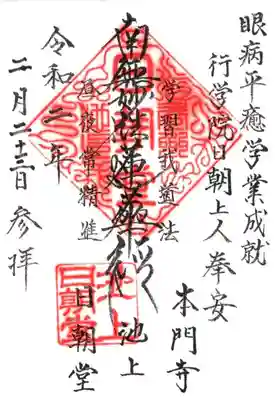 眼病平癒学業成就
行学院日朝上人奉安
本門寺
学習我道法
池上
南無妙法蓮華経
昼夜常精進
日朝堂
令和二年
二月二十三日 参拝
池上
日朝堂